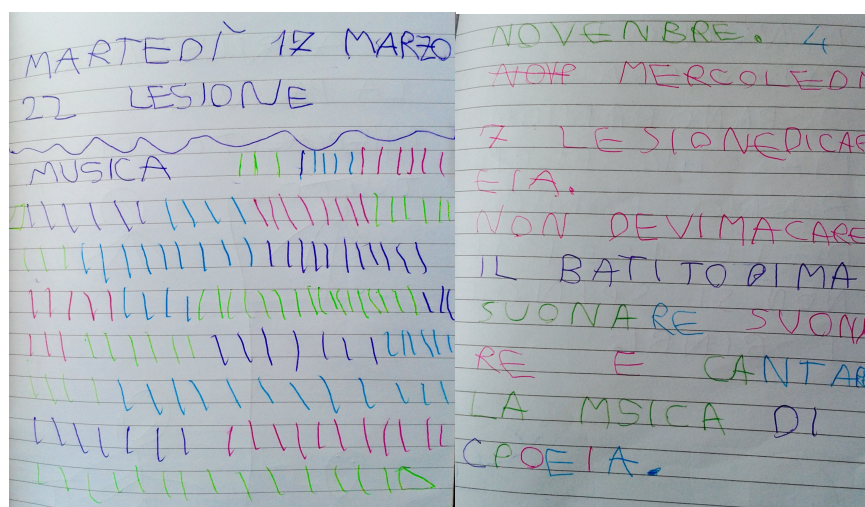 MARTEDÌ 17 MARZO
22 LESIONE
MUSICA
NOVENBRE. 4
MERCOLEDI
7 LESIONEDICAE
EIA.
NON DEVIMACARE
IL BATITOPIMA
SUONARE SUONA
RE E CANTAR
LA MSICA DI
CPOEIA.